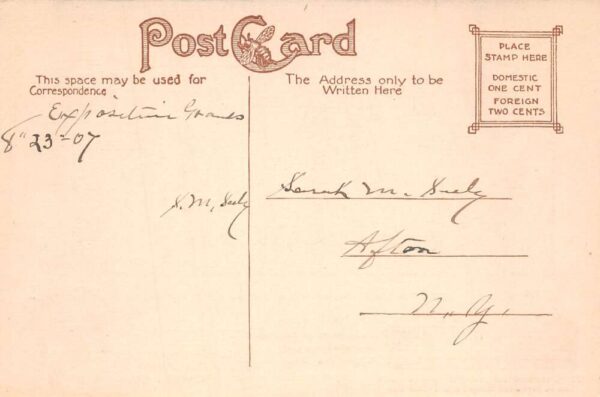 Post Card
This space may be used for
Correspondence
The Address only to be
Written Here
PLACE
STAMP HERE
DOMESTIC
ONE CENT
FOREIGN
TWO CENTS
Exposition Grounds
8" 23 = 07
S. M. Seely
Sarah M. Seely
Afton
N. Y.